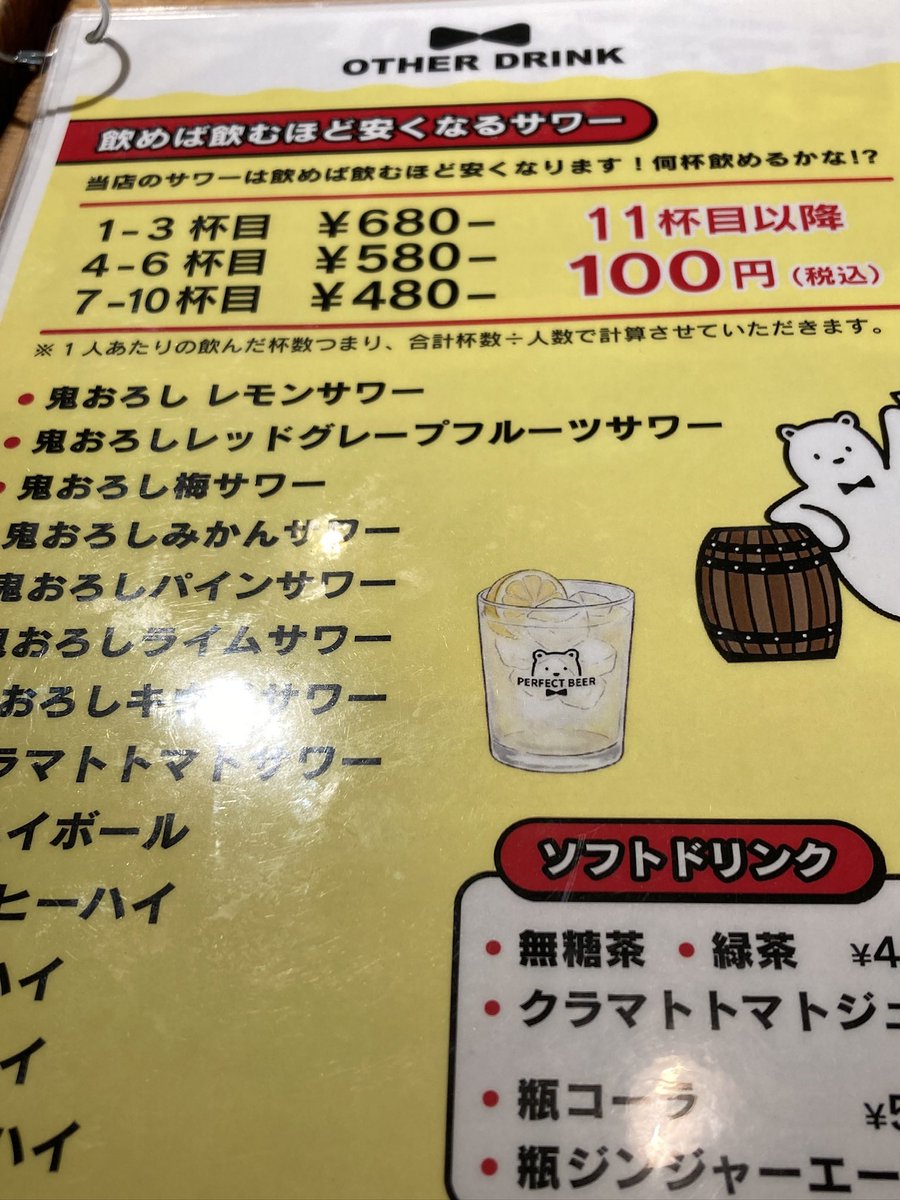 OTHER DRINK
飲めば飲むほど安くなるサワー
当店のサワーは飲めば飲むほど安くなります！何杯飲めるかな!?
1-3 杯目 ¥680-
4-6 杯目 ¥580-
7-10杯目 ¥480-
11杯目以降
100円（税込）
※1人あたりの飲んだ杯数つまり、合計杯数÷人数で計算させていただきます。
• 鬼おろし レモンサワー
• 鬼おろしレッドグレープフルーツサワー
• 鬼おろし梅サワー
鬼おろしみかんサワー
鬼おろしパインサワー
鬼おろしライムサワー
おろしキ サワー
ラマトトマトサワー
イボール
ヒーハイ
ハイ
イ
ハイ
PERFECT BEER
ソフトドリンク
• 無糖茶 • 緑茶 ¥4
• クラマトトマトジュ
• 瓶コーラ ¥5
• 瓶ジンジャーエー